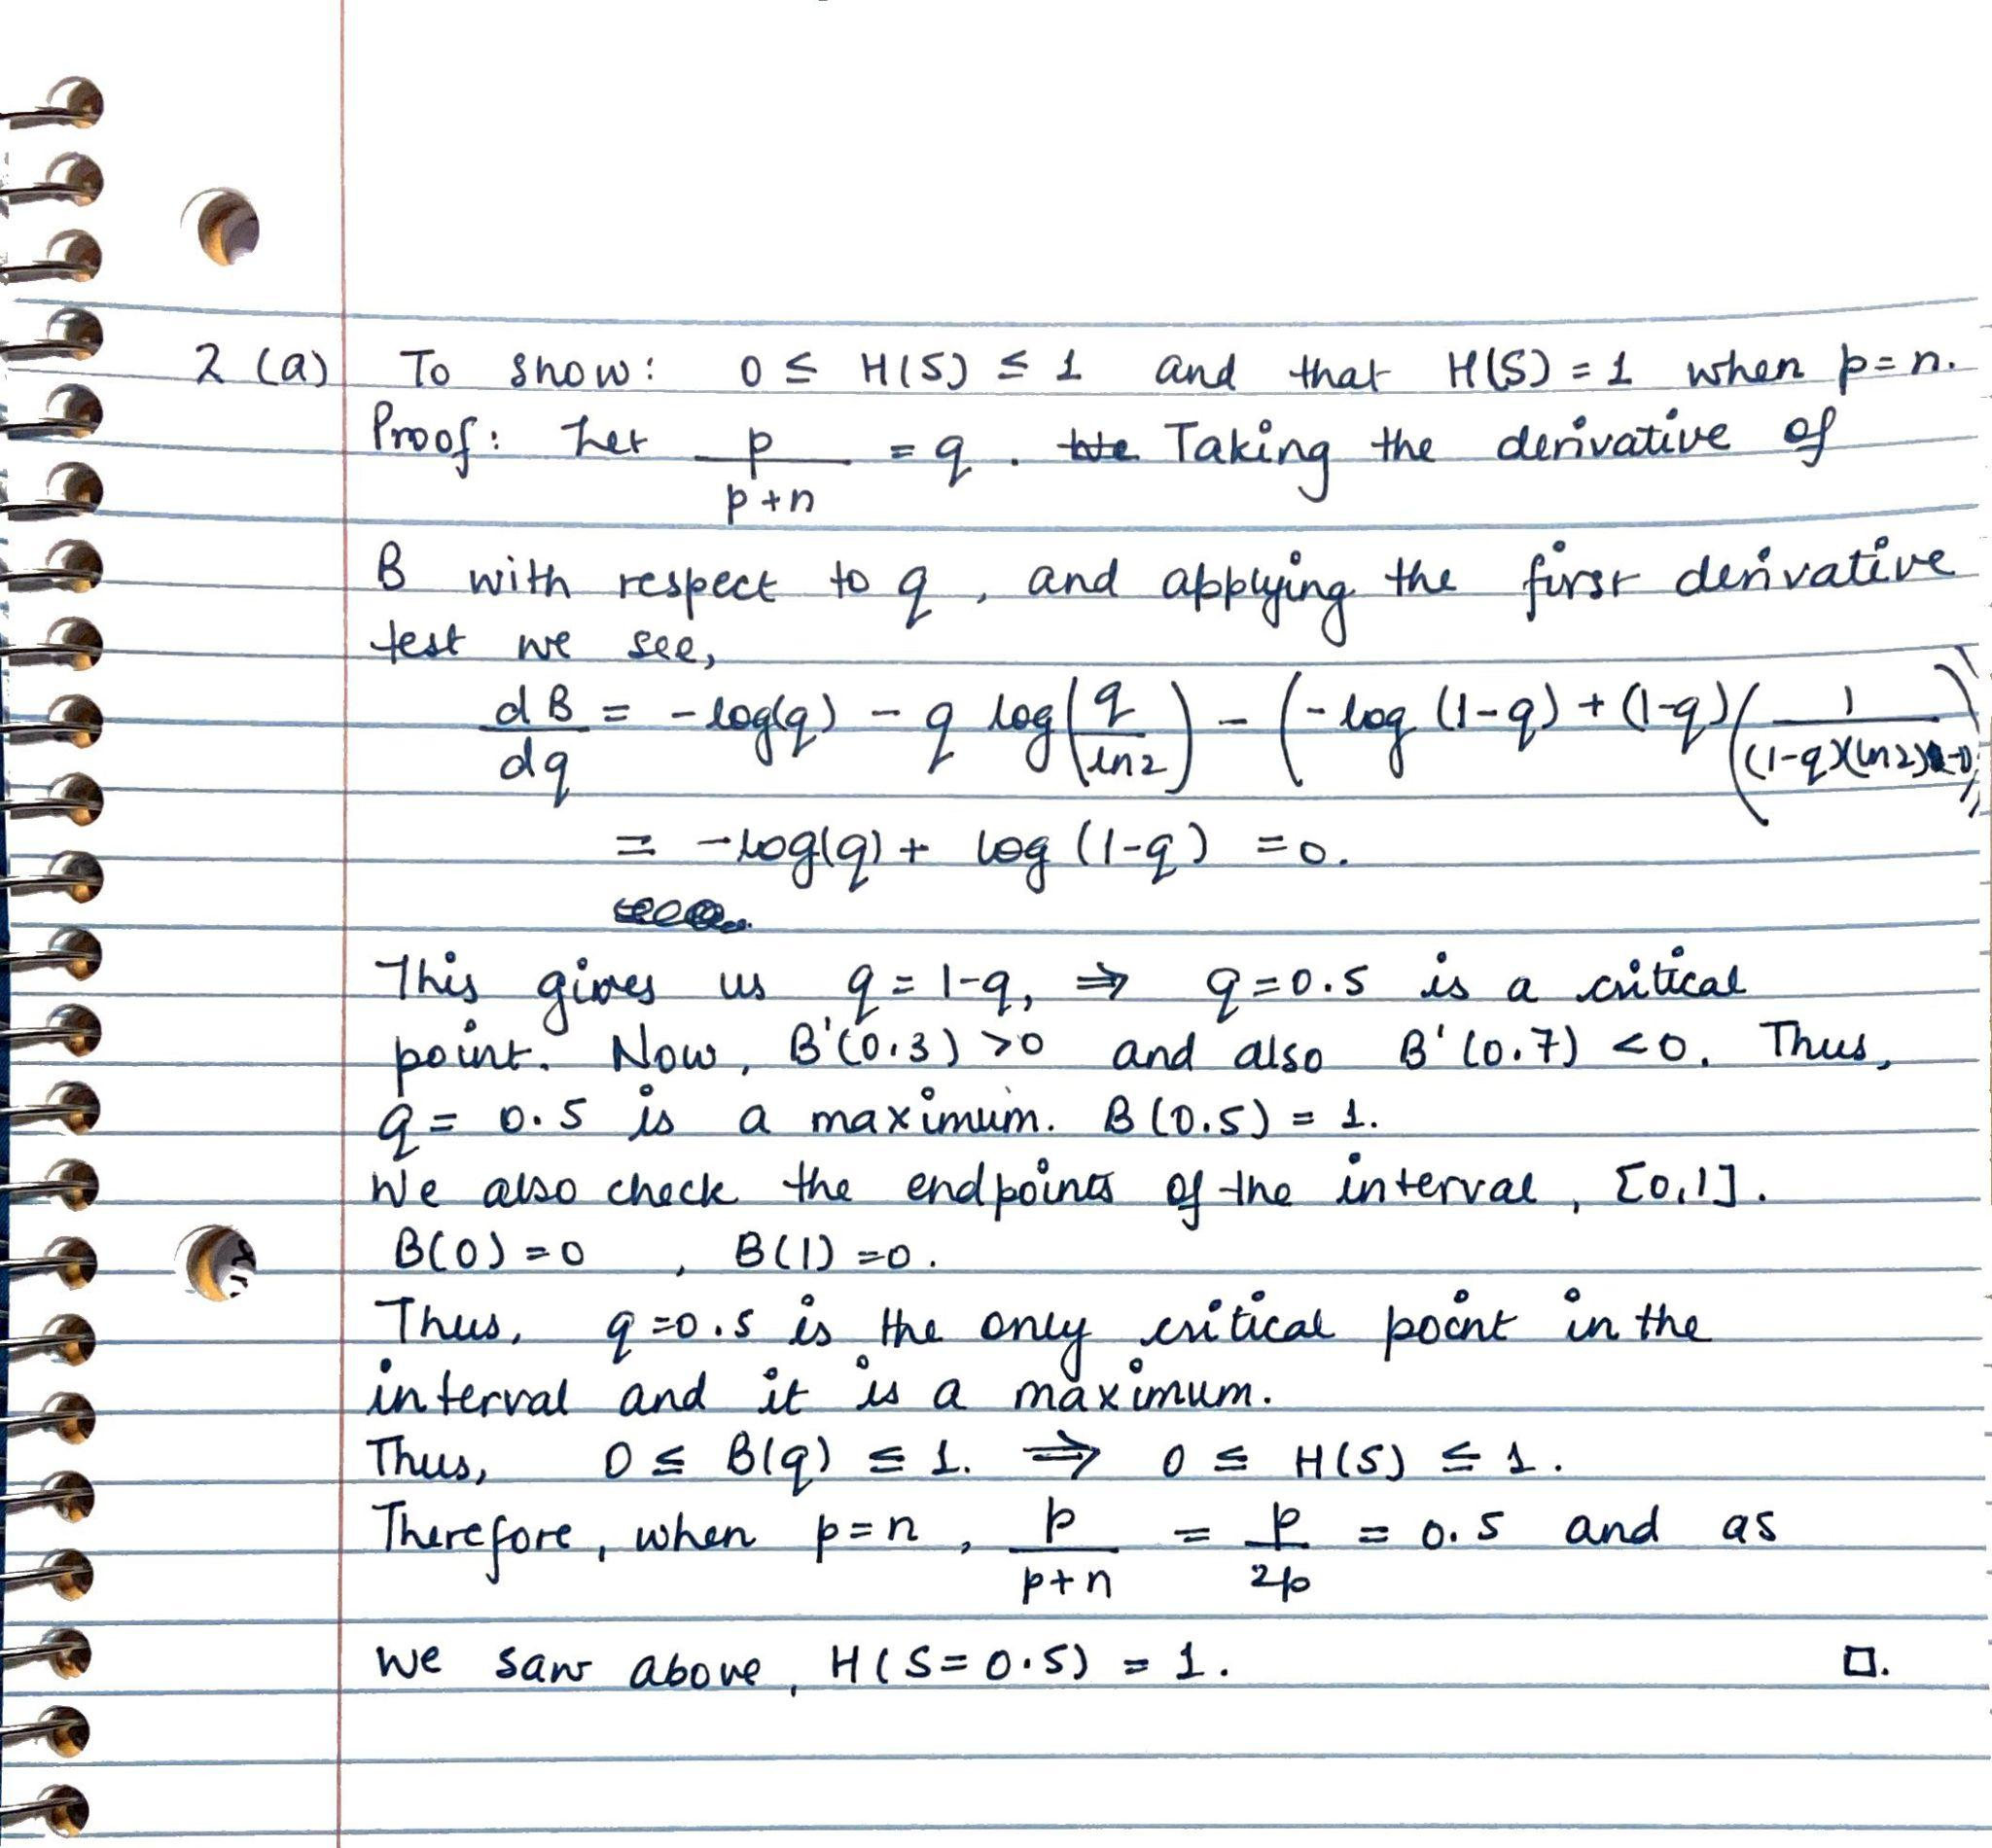 2 (a) To show: 0 ≤ H(S) ≤ 1 and that H(S) = 1 when p = n.
Proof: Let p/(p+n) = q. Taking the derivative of
B with respect to q, and applying the first derivative
test we see,
dB/dq = -log(q) - q log(q/ln2) - (-log (1-q) + (1-q)(1/((1-q)(ln2)(-1))))
= -log(q) + log (1-q) = 0.
This gives us q = 1-q, ⇒ q = 0.5 is a critical
point. Now, B'(0.3) > 0 and also B'(0.7) < 0. Thus,
q = 0.5 is a maximum. B(0.5) = 1.
We also check the endpoints of the interval, [0,1].
B(0) = 0 , B(1) = 0.
Thus, q = 0.5 is the only critical point in the
interval and it is a maximum.
Thus, 0 ≤ B(q) ≤ 1. ⇒ 0 ≤ H(S) ≤ 1.
Therefore, when p = n, p/(p+n) = p/2p = 0.5 and as
we saw above, H(S = 0.5) = 1. □.